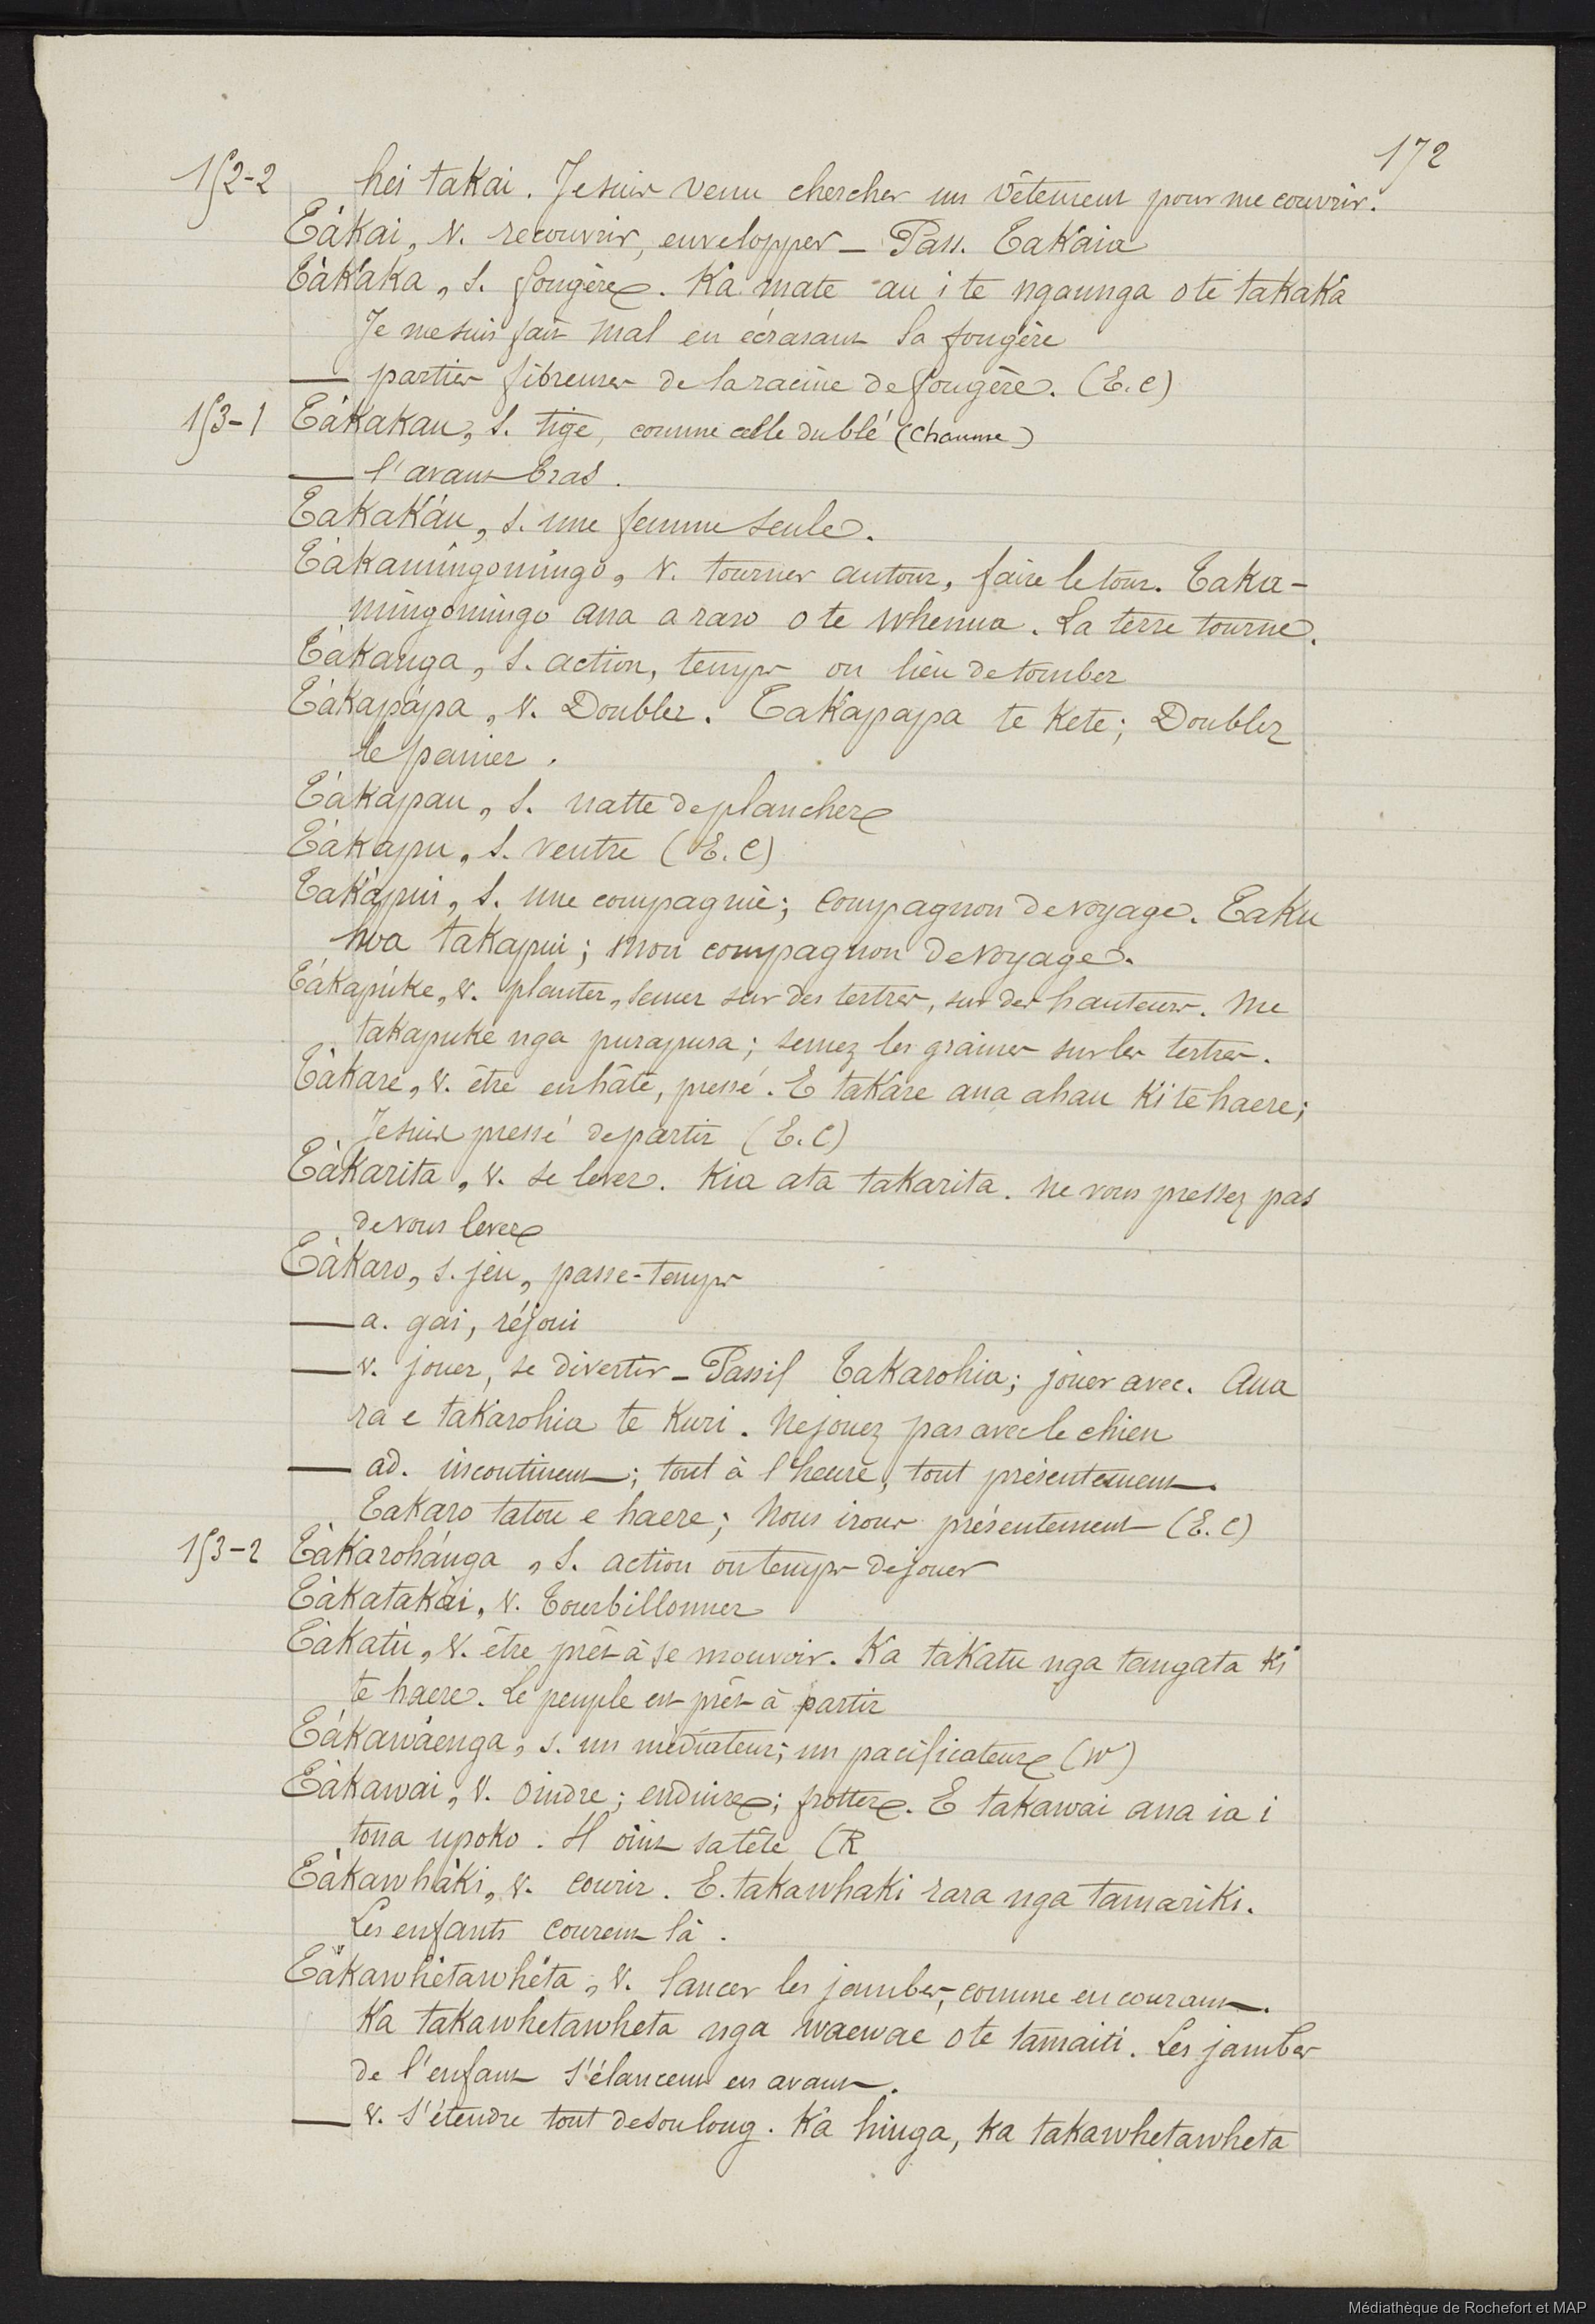 172
152-2 hei takai. Je suis venu chercher un vêtement pour me couvrir.
Tàkai, v. recouvrir, envelopper _ Pass. Takaia
Tàkaka, s. fougère. Ka mate au i te ngaunga o te takaka
Je me suis fait mal en écrasant la fougère
— parties fibreuses de la racine de fougère. (E.C)
153-1 Tàkakau, s. tige, comme celle du blé (chaume)
— l'avant bras.
Takakáu, s. une femme seule.
Tàkamingomingo, v. tourner autour, faire le tour. Taka-
mingomingo ana a raro o te whenua. La terre tourne.
Tàkanga, s. action, temps ou lieu de tomber
Tàkapápa, v. Doubler. Takapapa te kete; Doublez
le panier.
Tàkapau, s. natte de plancher
Tàkapu, s. ventre (E.C)
Takàpui, s. une compagnie; compagnon de voyage. Taku
hoa takapui; mon compagnon de voyage.
Tàkapúke, v. planter, semer sur des tertres, sur des hauteurs. Me
takapuke nga purapura; semez les graines sur les tertres.
Tàkare, v. être en hâte, pressé. E takare ana ahau ki te haere;
Je suis pressé de partir (E.C)
Tàkarita, v. se lever. Kia ata takarita. ne vous pressez pas
de vous lever
Tàkaro, s. jeu, passe-temps
— a. gai, réjoui
— v. jouer, se divertir _ Passif Takarohia; jouer avec. Aua
ra e takarohia te kuri. Ne jouez pas avec le chien
— ad. incontinent; tout à l'heure, tout présentement.
Takaro tatou e haere; Nous irons présentement (E.C)
153-2 Tàkarohánga, s. action ou temps de jouer
Tàkatakài, v. Tourbillonner
Tàkatù, v. être prêt à se mouvoir. Ka takatu nga tangata ki
te haere. Le peuple est prêt à partir
Tàkawàenga, s. un médiateur; un pacificateur (W)
Tàkawai, v. oindre; enduire; frotter. E takawai ana ia i
tona upoko. Il oint sa tête (R
Tàkawhàki, v. courir. E. takawhaki rara nga tamariki.
Les enfants courent là.
Tàkawhètawhéta, v. lancer les jambes, comme en courant.
Ka takawhetawheta nga waewae o te tamaiti. Les jambes
de l'enfant s'élancent en avant.
— v. s'étendre tout de son long. Ka hinga, ka takawhetawheta
Médiathèque de Rochefort et MAP